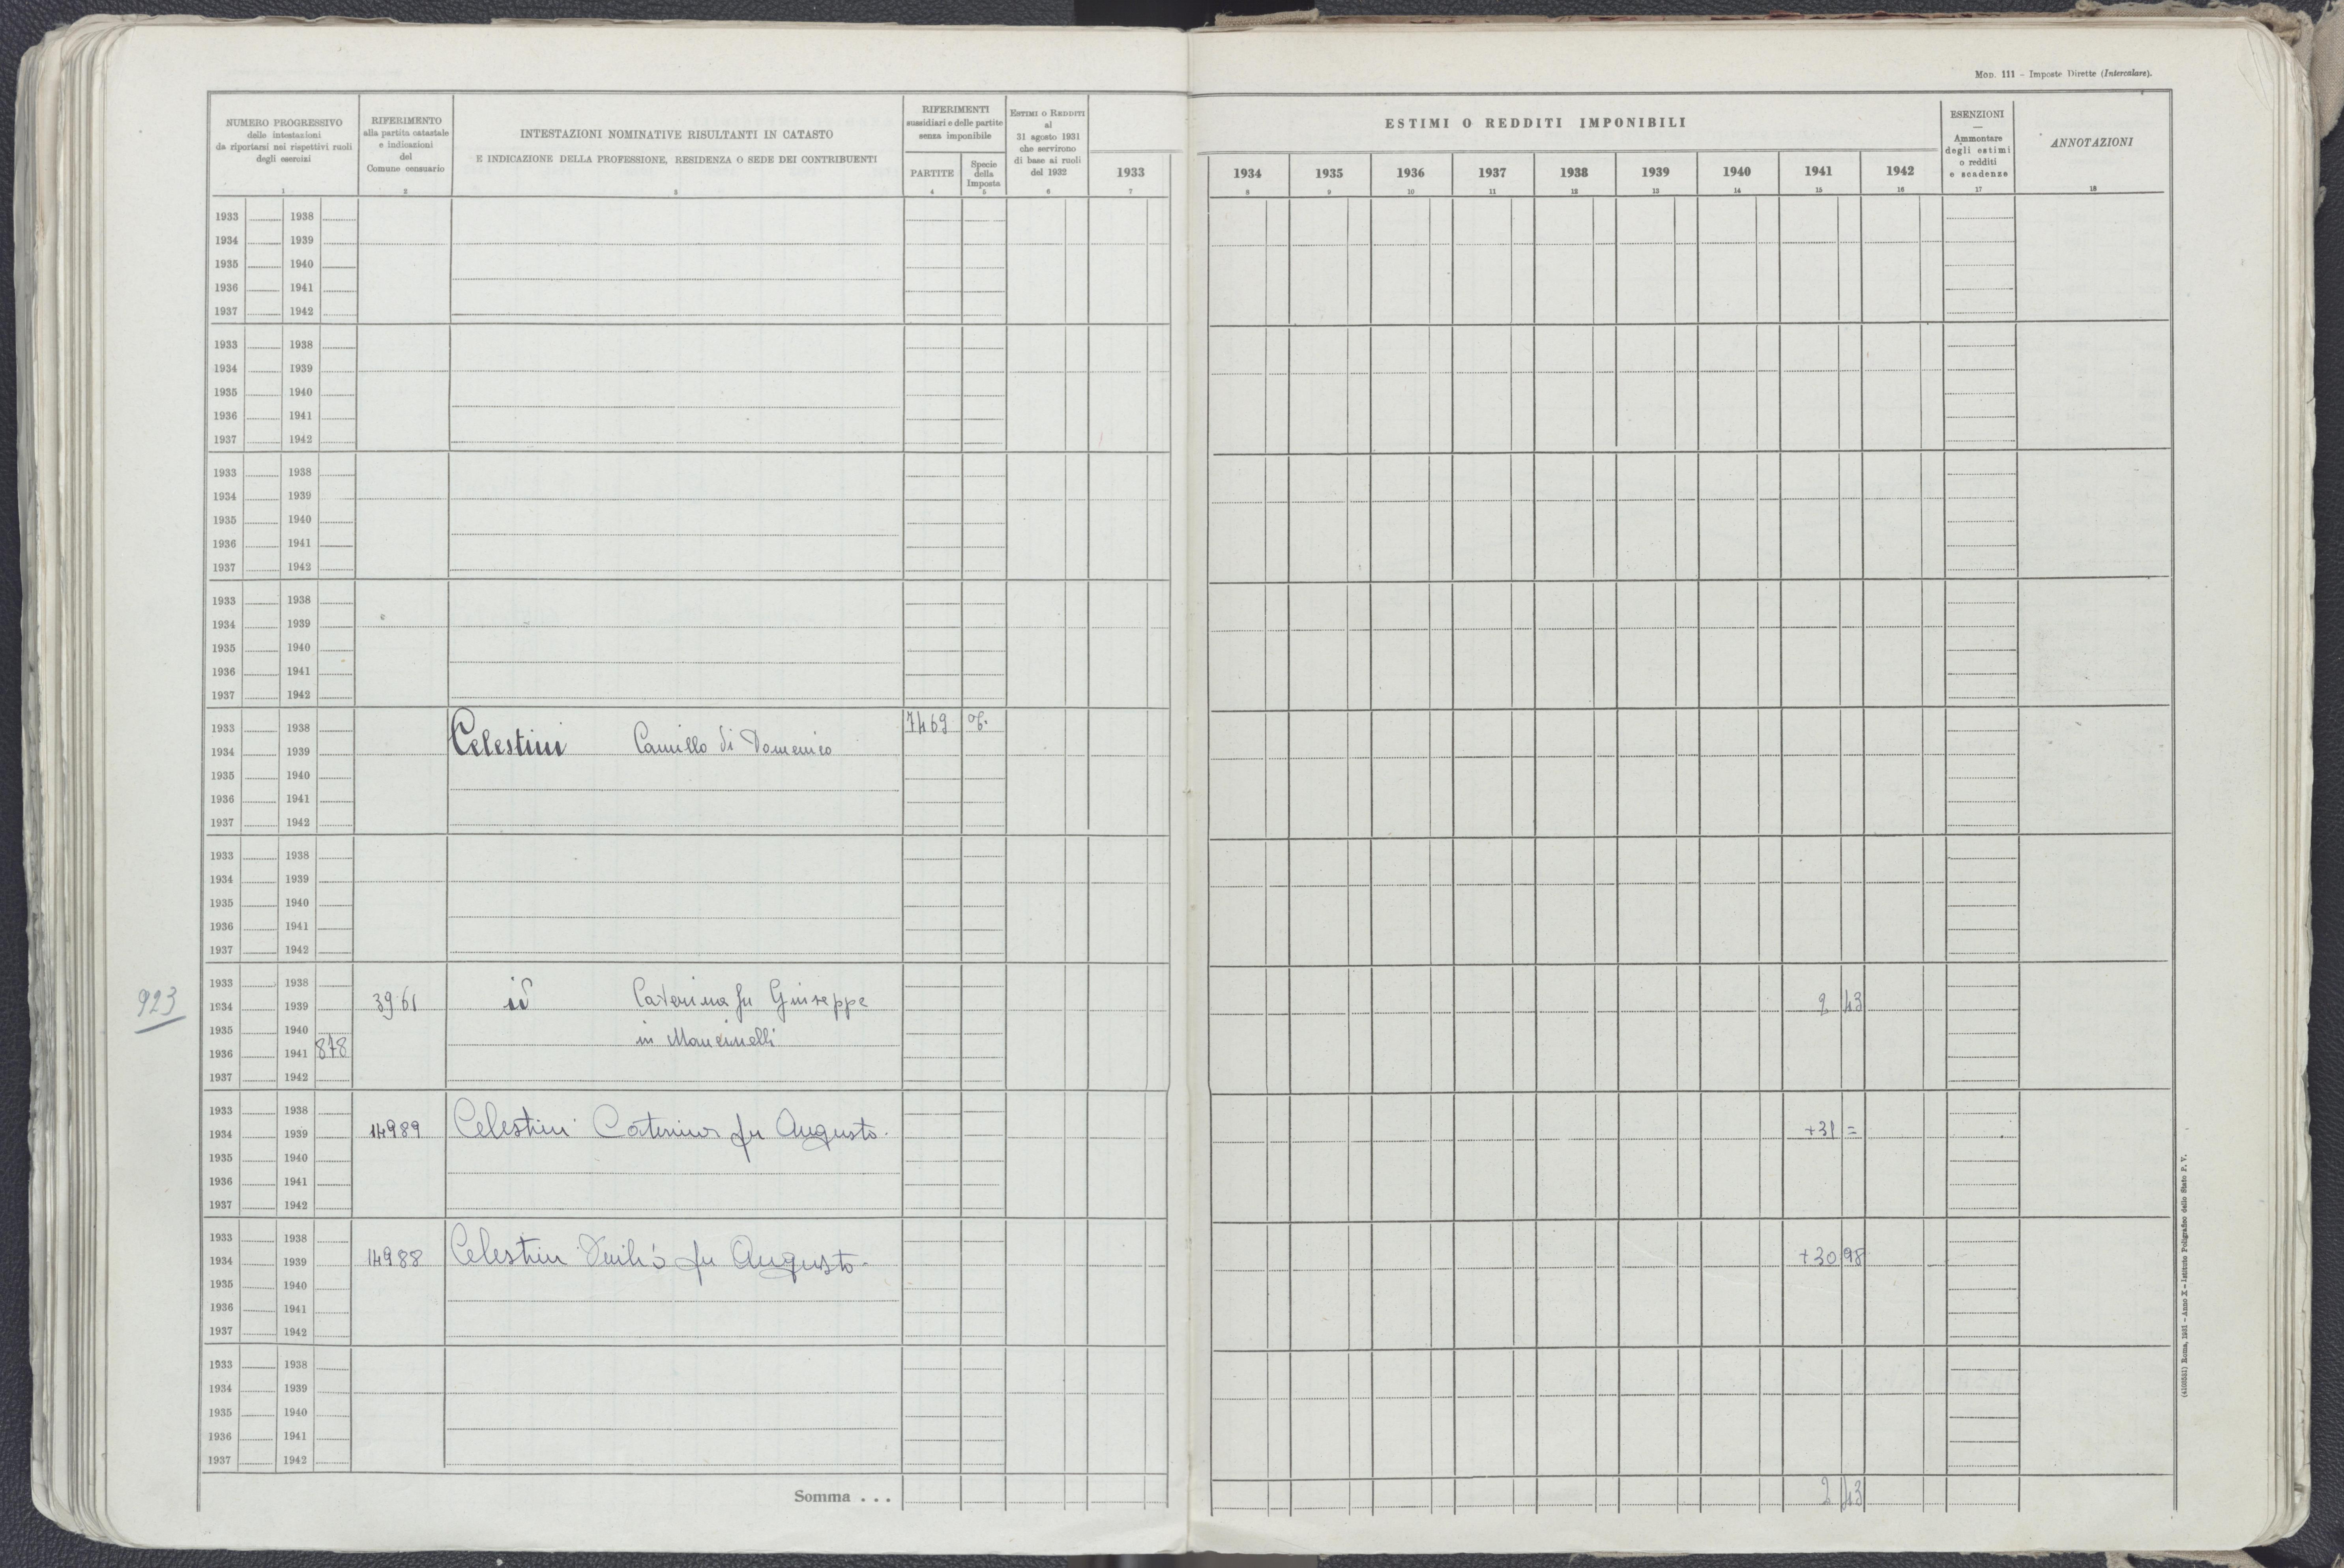 MOD. 111 - Imposte Dirette (Intercalare).
NUMERO PROGRESSIVO
delle intestazioni
da riportarsi nei rispettivi ruoli
degli esercizi
1
RIFERIMENTO
alla partita catastale
e indicazioni
del
Comune censuario
2
INTESTAZIONI NOMINATIVE RISULTANTI IN CATASTO
E INDICAZIONE DELLA PROFESSIONE, RESIDENZA O SEDE DEI CONTRIBUENTI
3
RIFERIMENTI
sussidiari e delle partite
senza imponibile
PARTITE
4
Specie
della
Imposta
5
ESTIMI O REDDITI
al
31 agosto 1931
che servirono
di base ai ruoli
del 1932
6
1933
7
ESTIMI O REDDITI IMPONIBILI
1934 1935 1936 1937 1938 1939 1940 1941 1942
8 9 10 11 12 13 14 15 16
ESENZIONI
—
Ammontare
degli estimi
o redditi
e scadenze
17
ANNOTAZIONI
18
1933 1938
1934 1939
1935 1940
1936 1941
1937 1942
1933 1938
1934 1939
1935 1940
1936 1941
1937 1942
1933 1938
1934 1939
1935 1940
1936 1941
1937 1942
1933 1938
1934 1939
1935 1940
1936 1941
1937 1942
1933 1938 7469
1934 1939 Celestini Camillo di Domenico
1935 1940
1936 1941
1937 1942
1933 1938
1934 1939
1935 1940
1936 1941
1937 1942
1933 1938
923 1934 1939 3961 id Caterina fu Giuseppe 2 43
1935 1940
in Mancinelli
1936 1941 878
1937 1942
1933 1938
1934 1939 14989 Celestini Caterina fu Augusto. +31 =
1935 1940
1936 1941
1937 1942
1933 1938
1934 1939 14988 Celestini Duilio fu Augusto. +30 98
1935 1940
1936 1941
1937 1942
1933 1938
1934 1939
1935 1940
1936 1941
1937 1942
Somma . . . 2 43
(4100351) Roma, 1931 - Anno X - Istituto Poligrafico dello Stato P. V.